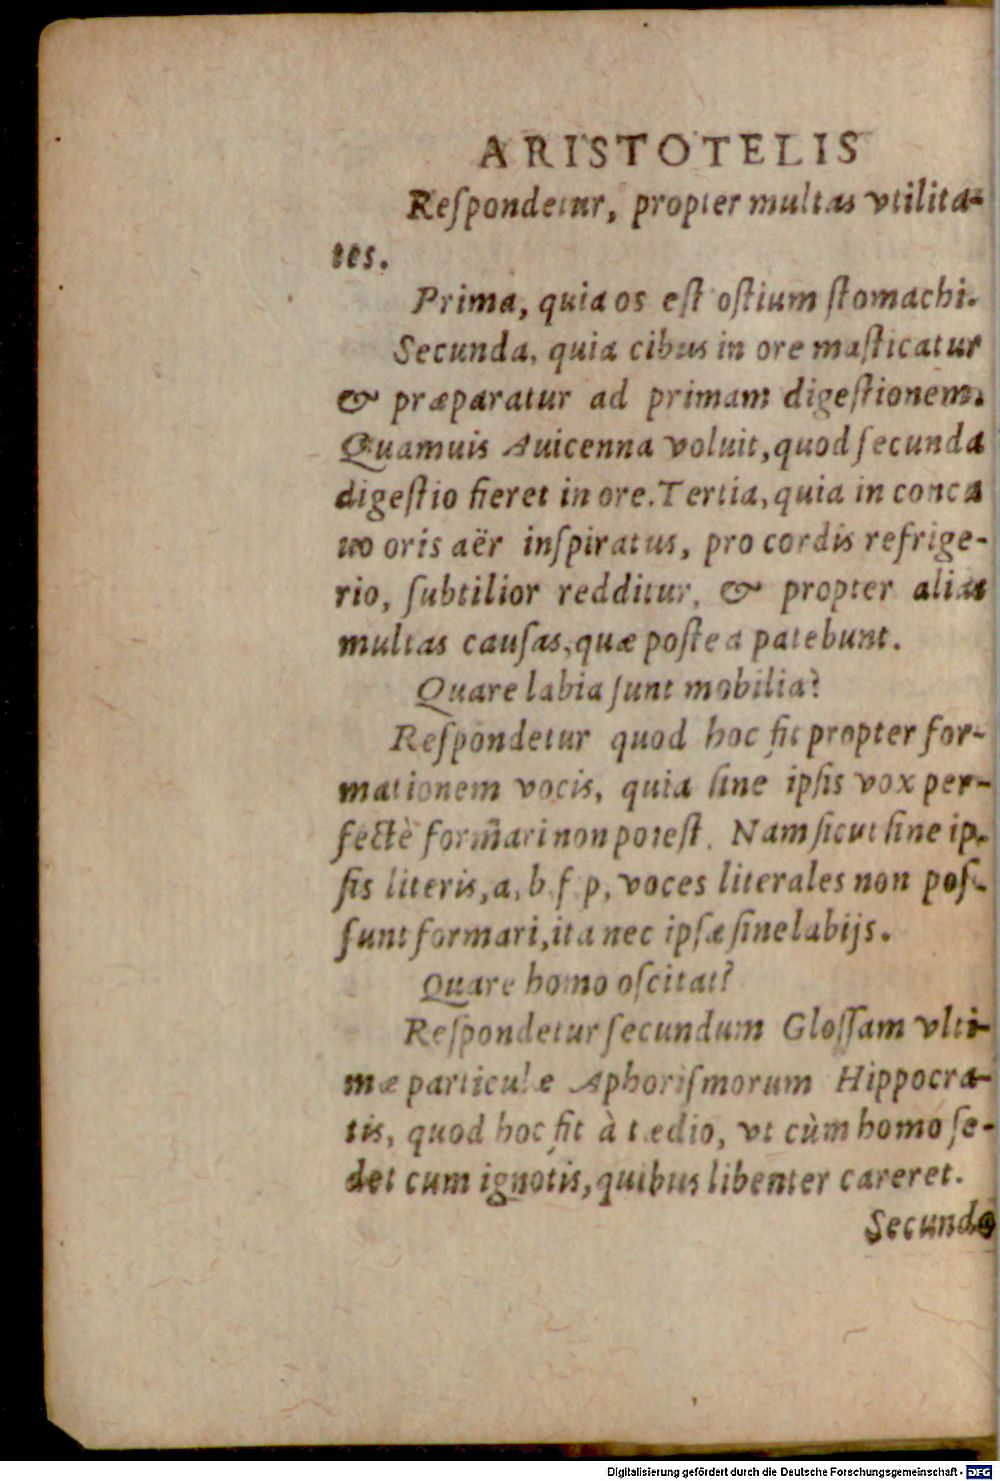 ARISTOTELIS
Reſpondetur, propter multas vtilita-
tes.
Prima, quia os eſt oſtium ſtomachi.
Secunda, quia cibus in ore maſticatur
& præparatur ad primam digeſtionem.
Quamuis Auicenna voluit, quod ſecunda
digeſtio fieret in ore. Tertia, quia in conca
uo oris aër inſpiratus, pro cordis refrige-
rio, ſubtilior redditur, & propter alias
multas cauſas, quæ poſtea patebunt.
Quare labia ſunt mobilia?
Reſpondetur quod hoc fit propter for-
mationem vocis, quia ſine ipſis vox per-
fectè formari non poteſt. Nam ſicut ſine ip-
ſis literis, a, b, f, p, voces literales non poſ-
ſunt formari, ita nec ipſæ ſine labijs.
Quare homo oſcitat?
Reſpondetur ſecundum Gloſſam vlti-
mæ particulæ Aphoriſmorum Hippocra-
tis, quod hoc fit à tædio, vt cùm homo ſe-
det cum ignotis, quibus libenter careret.
Secundò
Digitalisierung gefördert durch die Deutsche Forschungsgemeinschaft - DFG